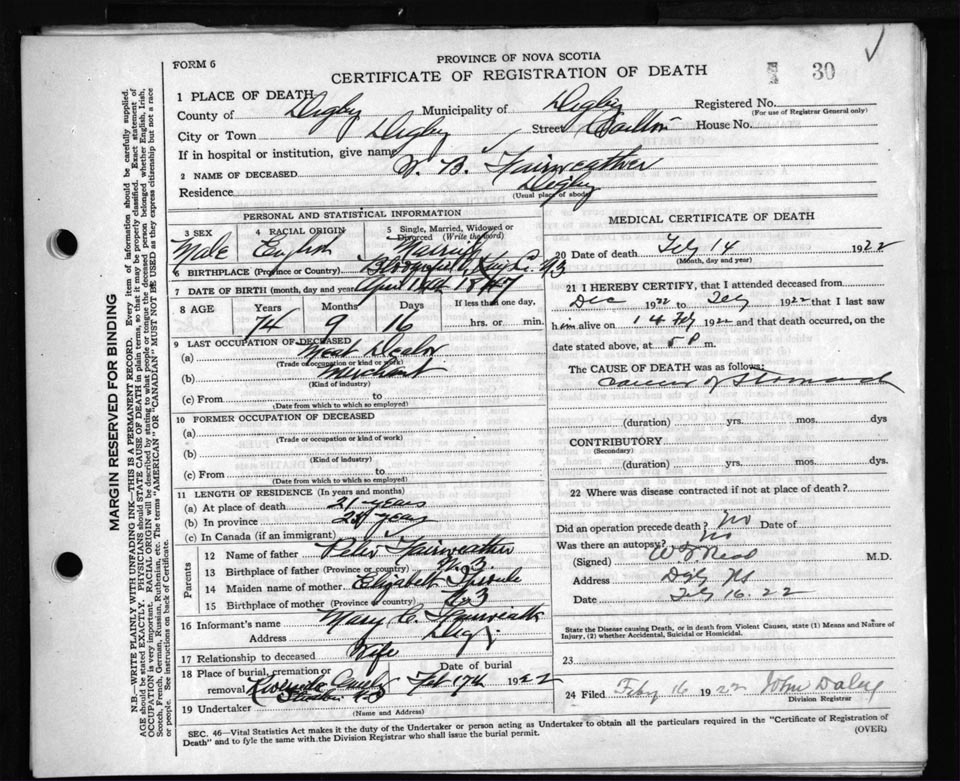 PROVINCE OF NOVA SCOTIA
FORM 6
CERTIFICATE OF REGISTRATION OF DEATH
30
1 PLACE OF DEATH
County of Digby Municipality of Digby Registered No.
(For use of Registrar General only)
City or Town Digby Street House No.
If in hospital or institution, give name
2 NAME OF DECEASED W. B. Fairweather
Residence Digby
(Usual place of abode)
PERSONAL AND STATISTICAL INFORMATION
3 SEX Male
4 RACIAL ORIGIN English
5 Single, Married, Widowed or Divorced (Write the word) Married
6 BIRTHPLACE (Province or Country)
7 DATE OF BIRTH (month, day and year) April 1847
8 AGE Years 74 Months 9 Days 16 If less than one day, hrs. or min.
9 LAST OCCUPATION OF DECEASED
(a) Meat Dealer
(Trade or occupation or kind of work)
(b) Merchant
(Kind of industry)
(c) From to
(Date from which to which so employed)
10 FORMER OCCUPATION OF DECEASED
(a)
(Trade or occupation or kind of work)
(b)
(Kind of industry)
(c) From to
(Date from which to which so employed)
11 LENGTH OF RESIDENCE (In years and months)
(a) At place of death 21 years
(b) In province years
(c) In Canada (if an immigrant)
Parents
12 Name of father Peter Fairweather
13 Birthplace of father (Province or country) N.B.
14 Maiden name of mother Elizabeth Sproule
15 Birthplace of mother (Province or country) N B
16 Informant's name Mary Fairweather
Address Digby
17 Relationship to deceased Wife
18 Place of burial, cremation or removal Riverside
Date of burial Feb 17th 1922
19 Undertaker
(Name and Address)
MEDICAL CERTIFICATE OF DEATH
20 Date of death Feby 14 1922
(Month, day and year)
21 I HEREBY CERTIFY, that I attended deceased from
Dec 1922 to Feby 1922 that I last saw
him alive on 14 Feby 1922 and that death occurred, on the
date stated above, at 5 P m.
The CAUSE OF DEATH was as follows:
Cancer of Stomach
(duration) yrs. mos. dys
CONTRIBUTORY
(Secondary)
(duration) yrs. mos. dys.
22 Where was disease contracted if not at place of death?
Did an operation precede death? No Date of
Was there an autopsy? No
(Signed) M.D.
Address Digby NS
Date Feby 16.22
State the Disease causing Death, or in death from Violent Causes, state (1) Means and Nature of
Injury, (2) whether Accidental, Suicidal or Homicidal.
23
24 Filed Feby 16 1922 John Daley
Division Registrar
SEC. 46—Vital Statistics Act makes it the duty of the Undertaker or person acting as Undertaker to obtain all the particulars required in the "Certificate of Registration of
Death" and to fyle the same with the Division Registrar who shall issue the burial permit. (OVER)
MARGIN RESERVED FOR BINDING
N.B.—WRITE PLAINLY WITH UNFADING INK—THIS IS A PERMANENT RECORD. Every item of information should be carefully supplied.
AGE should be stated EXACTLY. PHYSICIANS should STATE CAUSE OF DEATH in plain terms, so that it may be properly classified. Exact statement of
OCCUPATION is very important. RACIAL ORIGIN will be described by stating to what people or tongue the deceased person belonged whether English, Irish,
Scotch, French, German, Russian, Ruthenian, etc. The terms "AMERICAN" OR "CANADIAN" MUST NOT BE USED as they express citizenship but not a race
or people. See instructions on back of Certificate.